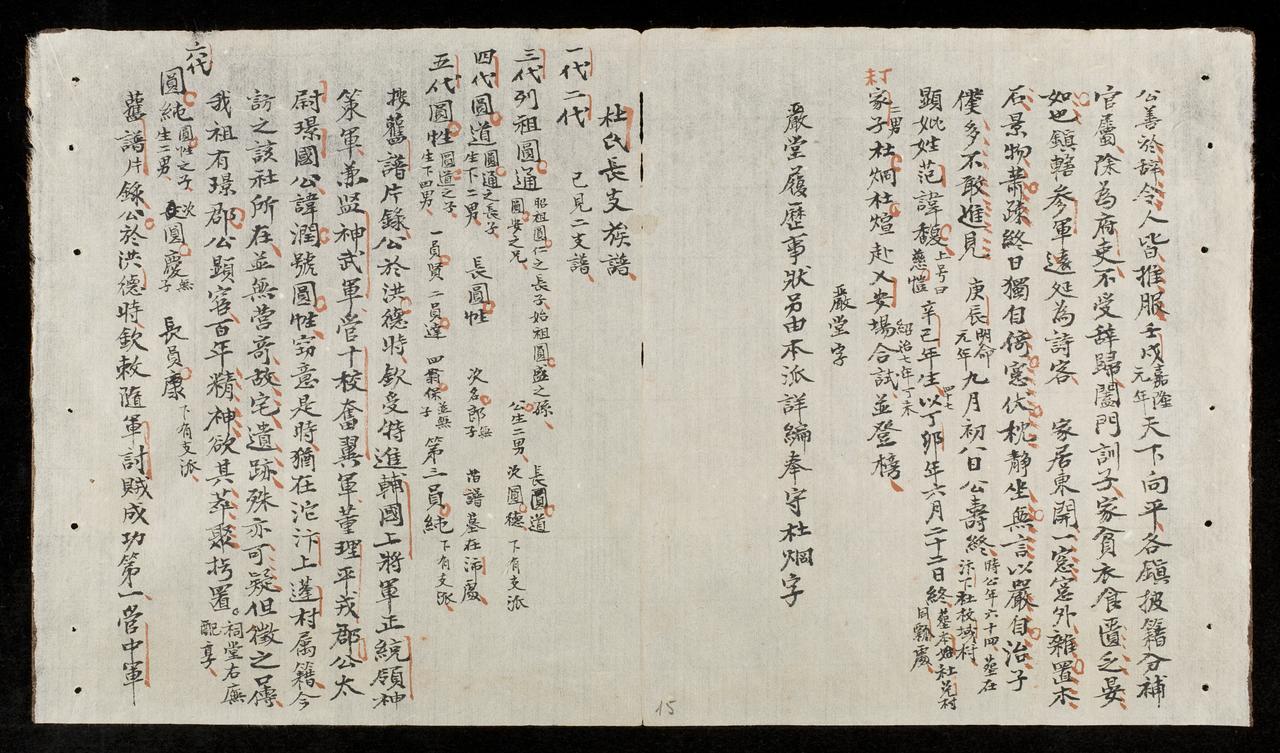 公善於辞令人皆推服壬戌嘉隆元年天下向平各鎮披籍分補
官屬除為府吏不受辞歸闔門訓子家貧衣食匱乏晏
如也鎮轄參軍遠延為詩客 家居東開一窓窓外雜置木
石景物蕭疎終日獨自倚窓伏枕静坐無言以嚴自治子
僕多不敢進見 庚辰明命元年九月初八日公壽終時公年六十四墓在汴下社校域村
顕妣姓范諱馥上号曰慈愷辛巳年生以丁卯年六月二十二日終墓本始社芫村同繇處
家子二男杜炯杜煊赴乂安場合試並登榜紹治七年丁未
嚴堂字
嚴堂履歷事狀另由本派詳編奉守杜烱字
杜氏長支族譜
一代二代 已見二支譜
三代列祖圓通昭祖圓仁之長子始祖圓盛之孫圓安之兄 公生二男 長圓道 次圓德下有支派
四代圓道圓通之長子生下二男 長圓性 次名郎無子 昔譜墓在沛處
五代圓性圓道之子生下四男 一員賢 二員達 四翁保並無子 第三員純下有支派
按舊譜片錄公於洪德時欽受特進輔國上將軍正統領神
策軍兼监神武軍管十校奮翼軍董理平戎郡公太
尉璟國公諱潤號圓性窃意是時猶在沱汴上蓬村属籍今
訪之該社所在並無营竒故宅遺跡殊亦可疑但徵之口傳
我祖有璟郡公顕宦百年精神欲其萃聚拷置祠堂右廡配享
六代
圓純圓性之子生二男 次圓慶無子 長員康下有支派
舊譜片錄公於洪德時欽敕隨軍討賊成功第一管中軍
15